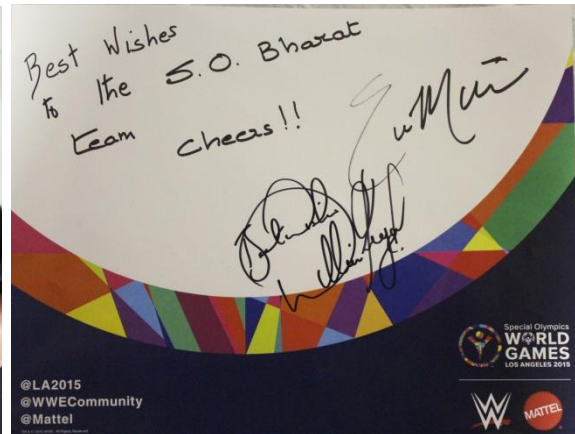 Best Wishes
to the S.O. Bharat
team cheers!!
Special Olympics
WORLD
GAMES
LOS ANGELES 2015
@LA2015
@WWECommunity
@Mattel
W
MATTEL